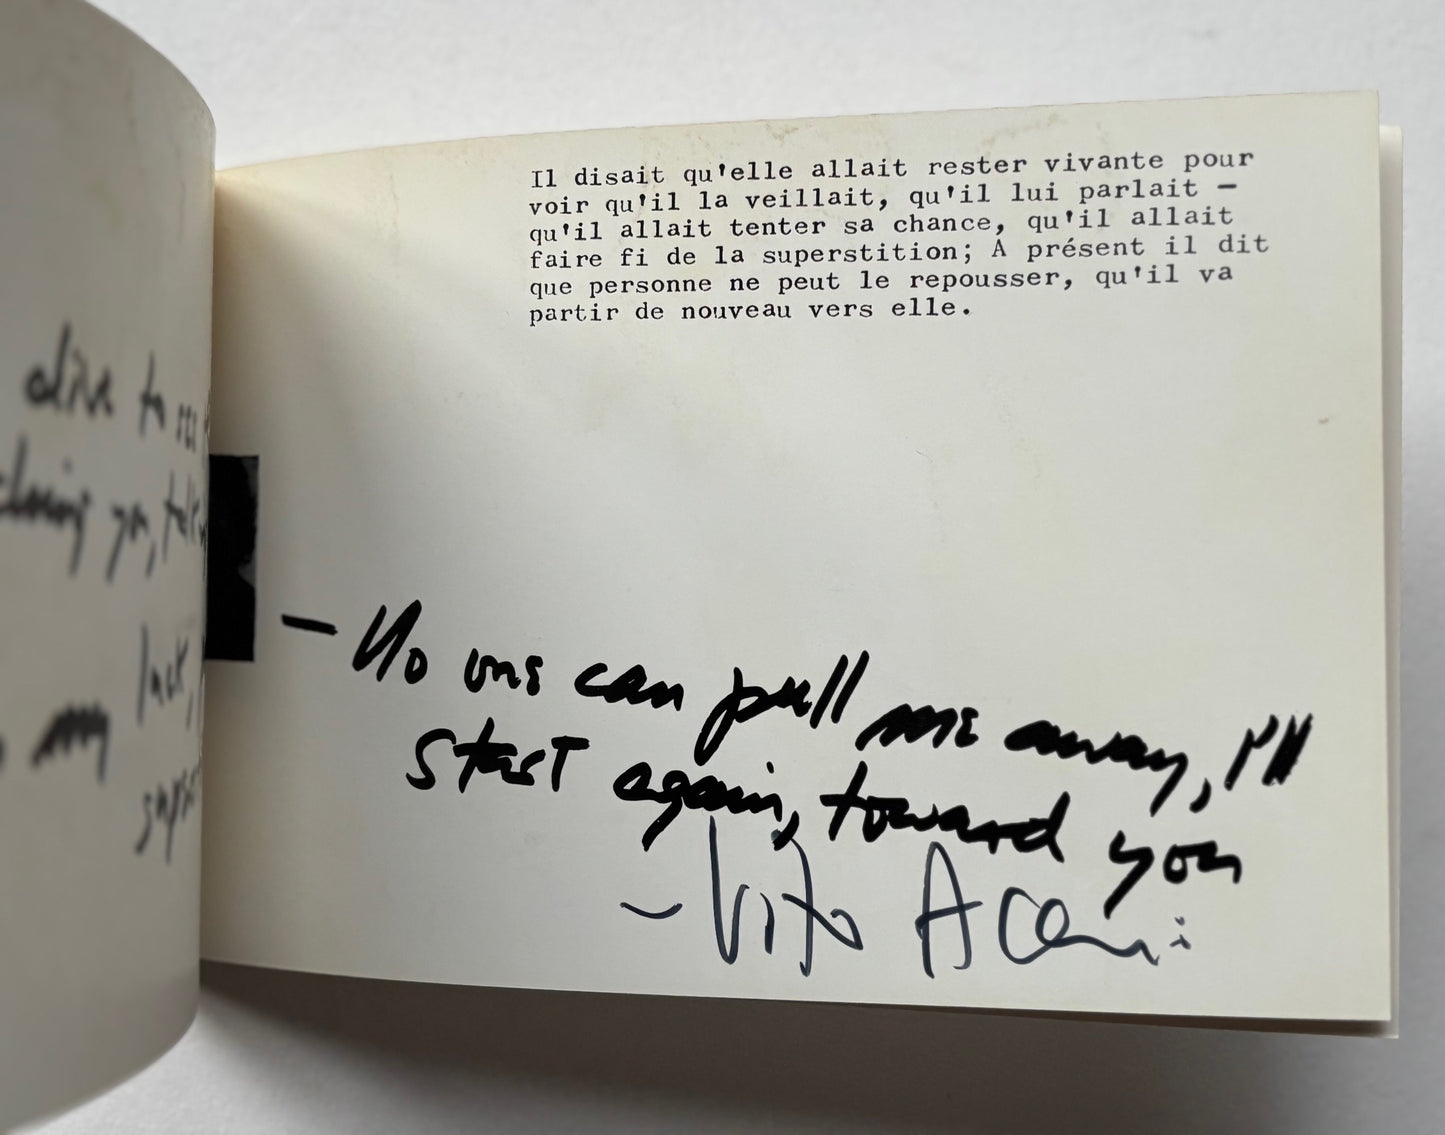 alive to see
you,
luck,
my
Il disait qu'elle allait rester vivante pour
voir qu'il la veillait, qu'il lui parlait —
qu'il allait tenter sa chance, qu'il allait
faire fi de la superstition; A présent il dit
que personne ne peut le repousser, qu'il va
partir de nouveau vers elle.
— No one can pull me away, I'll
start again, toward you
~ Vito Acconci